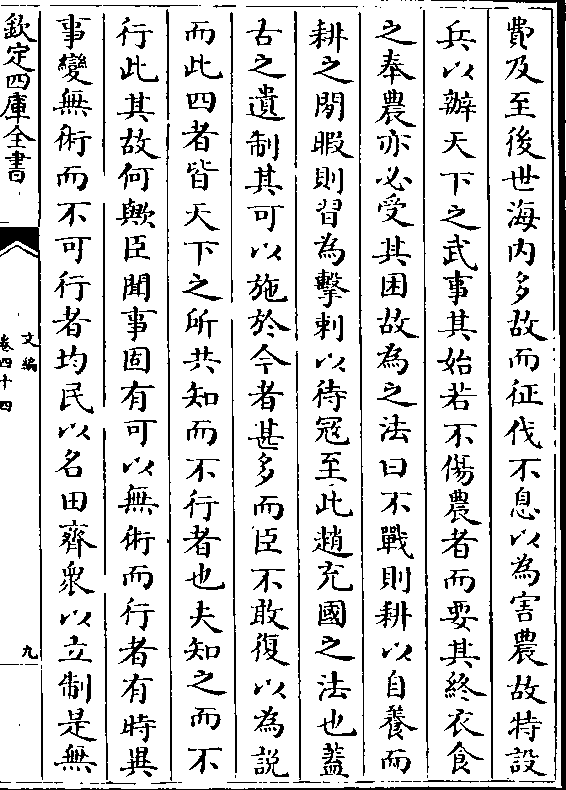 費及至後世海内多故而征伐不息以為害農故特設
兵以辦天下之武事其始若不傷農者而要其終衣食
之奉農亦必受其困故為之法曰不戰則耕以自養而
耕之閒暇則習為擊刺以待冦至此趙充國之法也蓋
古之遺制其可以施於今者甚多而臣不敢復以為説
而此四者皆天下之所共知而不行者也夫知之而不
行此其故何歟臣聞事固有可以無術而行者有時異
事變無術而不可行者均民以名田齊衆以立制是無
欽定四庫全書
文編
卷四十四
九